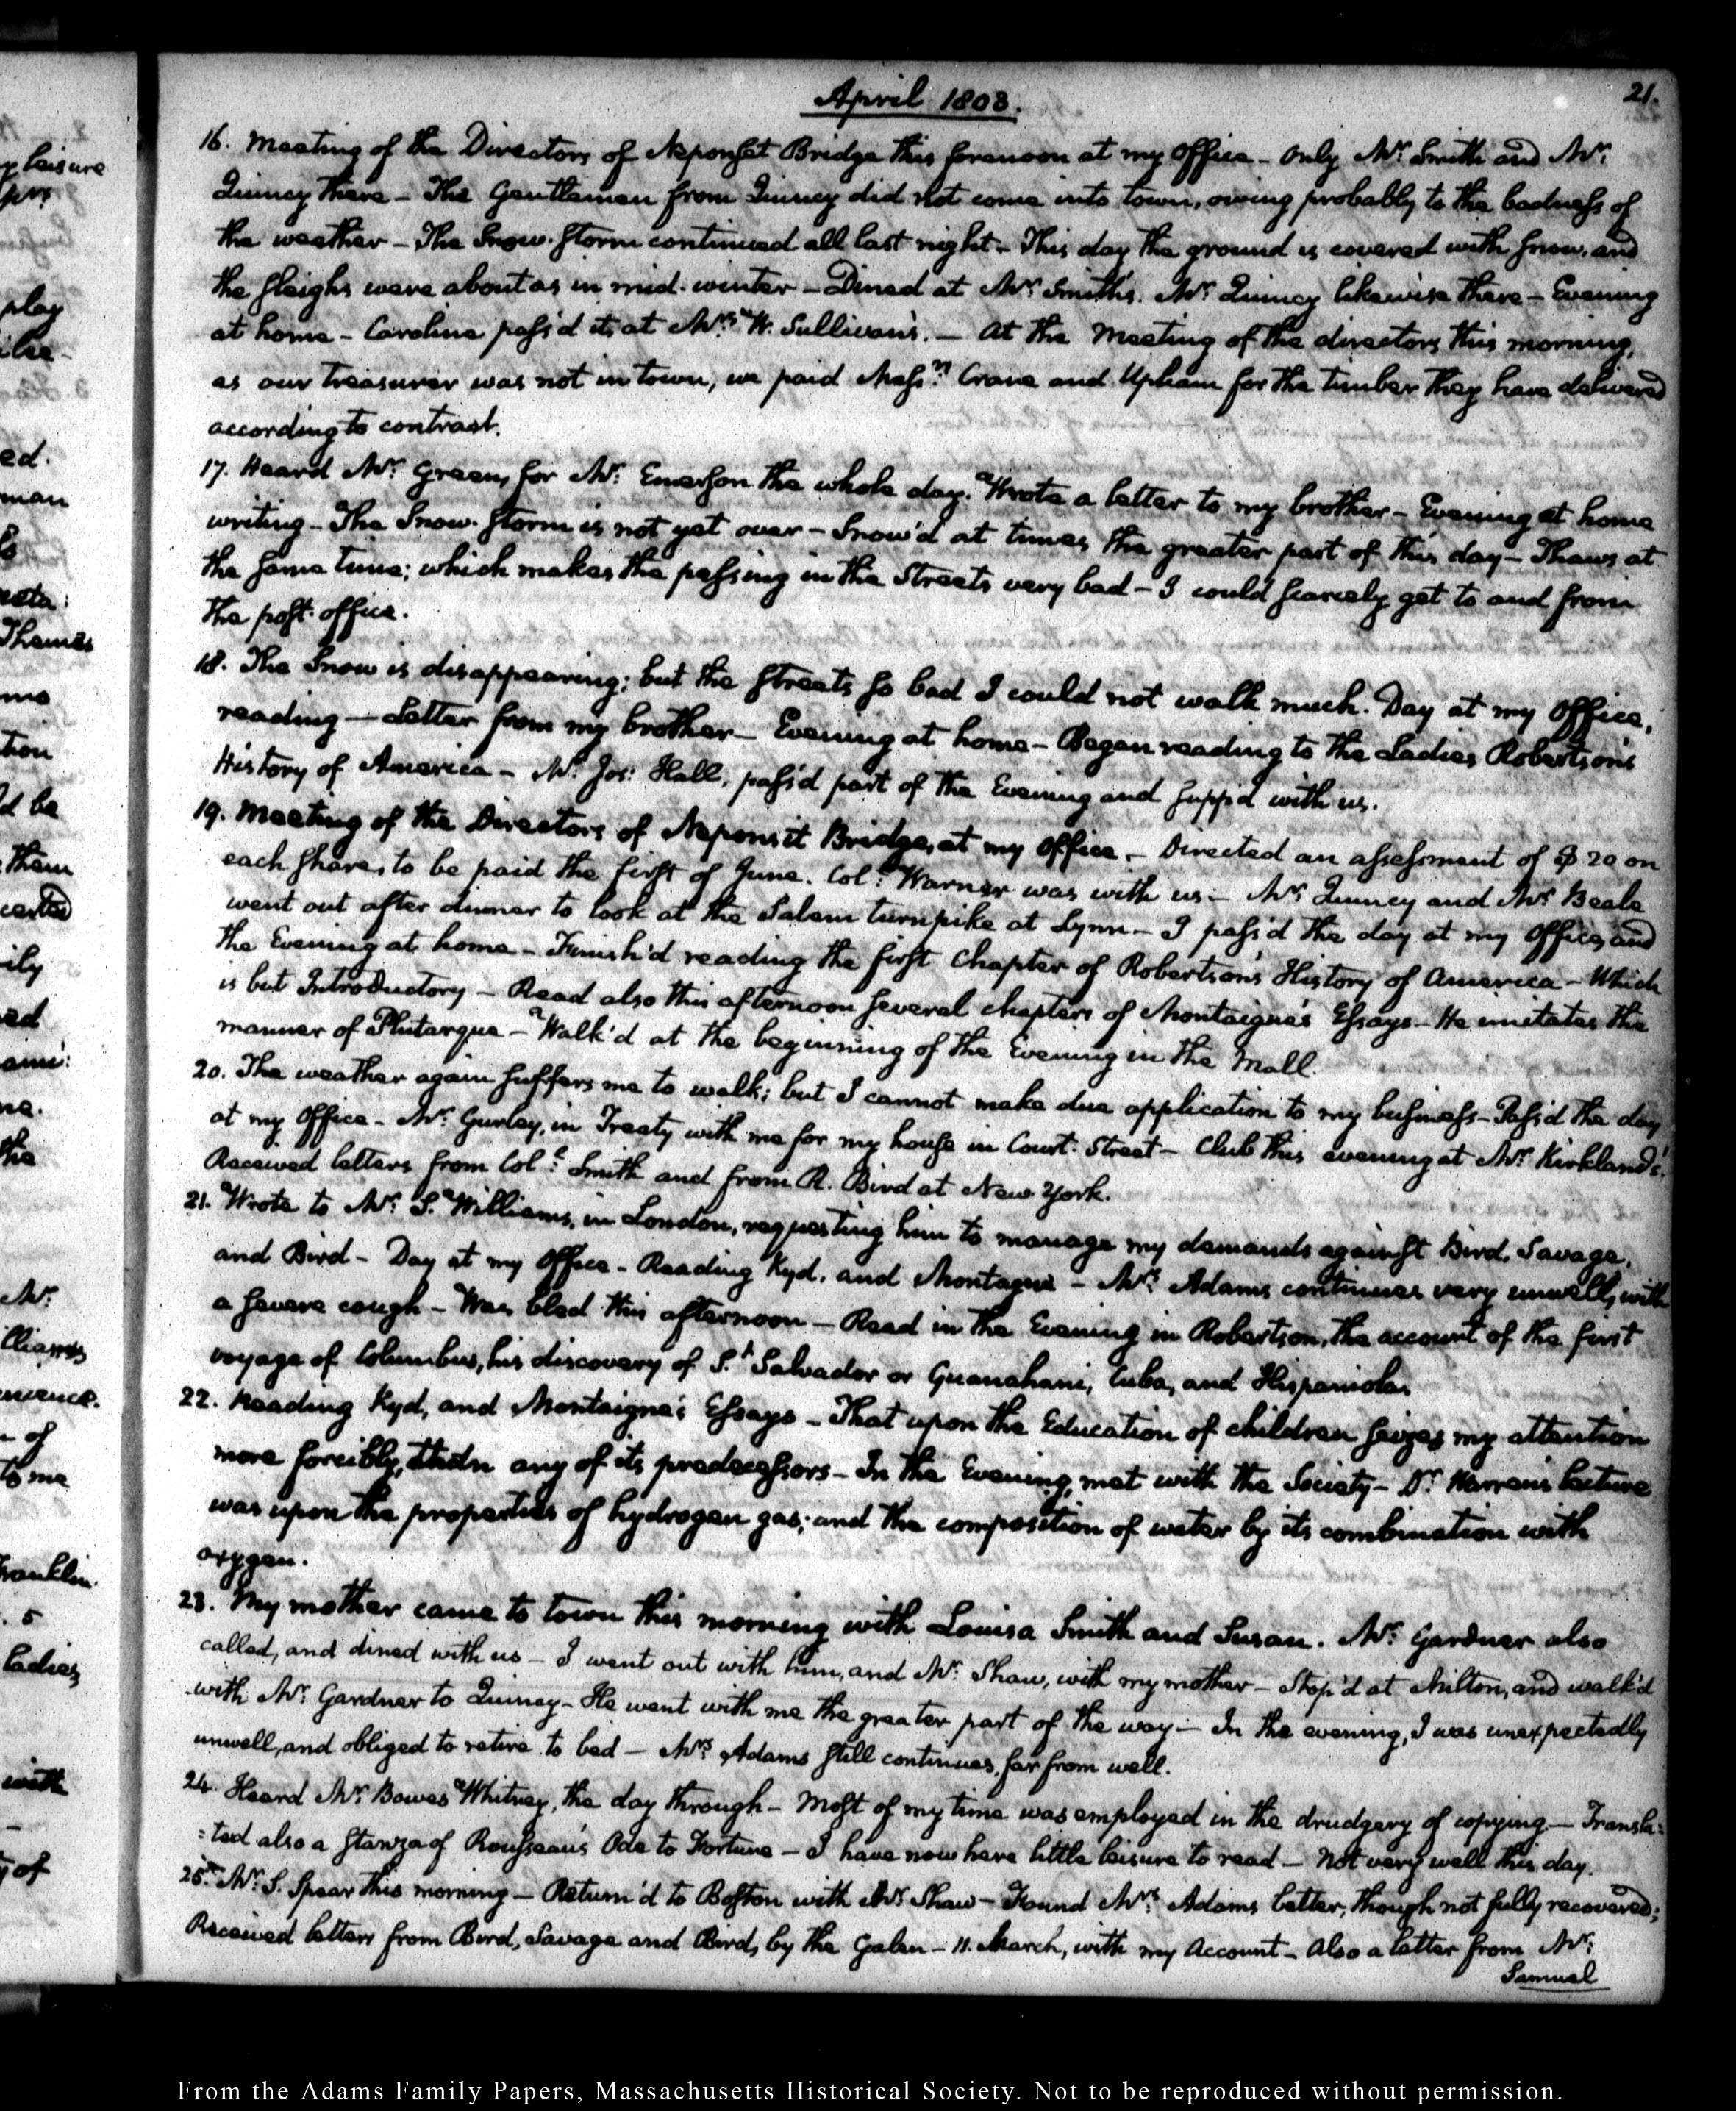 April 1803.
21.
16. Meeting of the Directors of Neponset Bridge this forenoon at my Office – Only Mr. Smith and Mr.
Quincy there – The Gentlemen from Quincy did not come into town, owing probably to the badness of
the weather – The Snow-storm continued all last night – This day the ground is covered with snow, and
the sleighs were about as in mid-winter – Dined at Mr. Smith's. Mr. Quincy likewise there – Evening
at home – Caroline pass'd it at Mrs. W. Sullivan's. – At the Meeting of the directors this morning,
as our treasurer was not in town, we paid Messrs. Crane and Upham for the timber they have delivered
according to contract.
17. Heard Mr. Green, for Mr. Emerson the whole day. Wrote a letter to my brother – Evening at home
writing – The Snow-storm is not yet over – Snow'd at times the greater part of this day – Thaws at
the same time; which makes the passing in the Streets very bad – I could scarcely get to and from
the post-office.
18. The Snow is disappearing; but the streets so bad I could not walk much. Day at my Office,
reading – Letter from my brother – Evening at home – Began reading to the Ladies Robertson's
History of America – Mr. Jos: Hall, pass'd part of the Evening and supp'd with us.
19. Meeting of the Directors of Neponsit Bridge, at my Office. – Directed an assessment of $20 on
each share, to be paid the first of June. Coll. Warner was with us – Mr. Quincy and Mr. Beale
went out after dinner to look at the Salem turnpike at Lynn – I pass'd the day at my Office, and
the Evening at home – Finish'd reading the first Chapter of Robertson's History of America – Which
is but Introductory – Read also this afternoon several chapters of Montaigne's Essays – He imitates the
manner of Plutarque – Walk'd at the beginning of the Evening in the Mall.
20. The weather again suffers me to walk; but I cannot make due application to my business – Pass'd the day
at my Office – Mr. Gurley, in Treaty with me for my house in Court-Street – Club this evening at Mr. Kirkland's.
Received letters from Coll. Smith and from R. Bird at New York.
21. Wrote to Mr. S. Williams, in London, requesting him to manage my demands against Bird, Savage,
and Bird – Day at my Office – Reading Kyd, and Montagne – Mrs. Adams continues very unwell, with
a severe cough – Was bled this afternoon – Read in the Evening in Robertson, the account of the first
voyage of Columbus, his discovery of St. Salvador or Guanahani, Cuba, and Hispaniola.
22. Reading Kyd, and Montaigne's Essays – That upon the Education of children seizes my attention
more forcibly, than any of its predecessors – In the Evening, met with the Society – Dr. Warren's lecture
was upon the properties of hydrogen gas; and the composition of water by its combination with
oxygen.
23. My mother came to town this morning with Louisa Smith and Susan. Mr. Gardner also
called, and dined with us – I went out with him, and Mr. Shaw, with my mother – Stop'd at Milton, and walk'd
with Mr. Gardner to Quincy – He went with me the greater part of the way – In the evening, I was unexpectedly
unwell, and obliged to retire to bed – Mrs. Adams still continues, far from well.
24. Heard Mr. Bowes Whitney, the day through – Most of my time was employed in the drudgery of copying. – Transla:
:ted also a stanza of Rousseau's Ode to Fortune – I have now have little leisure to read – Not very well this day.
25. Mr. S. Spear this morning – Return'd to Boston with Mr. Shaw – Found Mrs. Adams better, though not fully recovered;
Received letters from Bird, Savage and Bird, by the Galen – 11. March, with my Account – Also a letter from Mr.
Samuel
y leisure
play
ed.
man
Thames
tion
d be
them
ily
ed
ne.
the
Mr.
lliams
– of
to me
ranklin.
. 5
Ladies
with
of
From the Adams Family Papers, Massachusetts Historical Society. Not to be reproduced without permission.